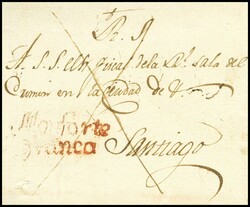 R. S.
A. S. S. el Sr. Fiscal de la Rl. Sala del
Crimen en la Ciudad de
Monforte
Franca
Santiago